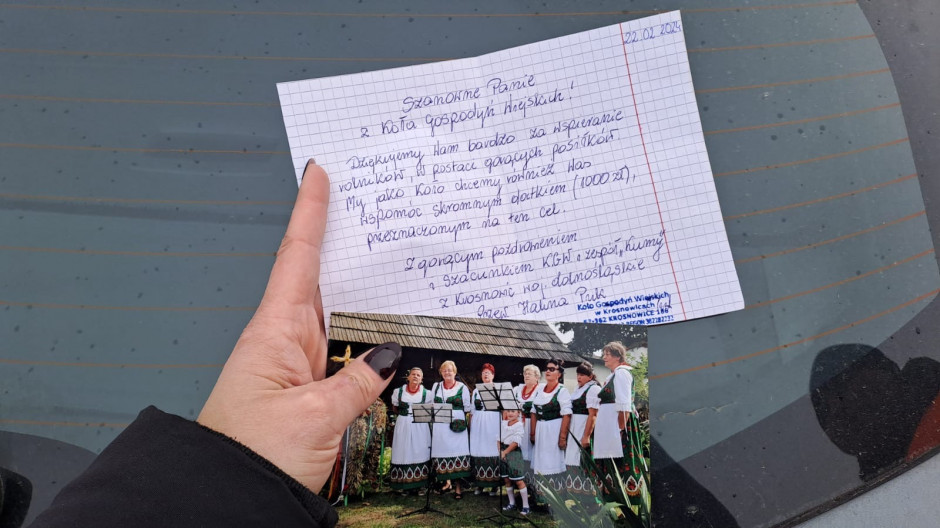 22.02.2024
Szanowne Panie
z Koła Gospodyń Wiejskich!
Dziękujemy Wam bardzo za wspieranie
rolników w postaci gorących posiłków
My jako Koło chcemy również Was
wspomóc skromnym datkiem (1000 zł),
przeznaczonym na ten cel.
Z gorącym pozdrowieniem
i szacunkiem KGW i zespół „Kumy"
z Krosnowic woj. dolnośląskie
Przew. Halina
Koło Gospodyń Wiejskich
w Krosnowicach
57-362 KROSNOWICE 186